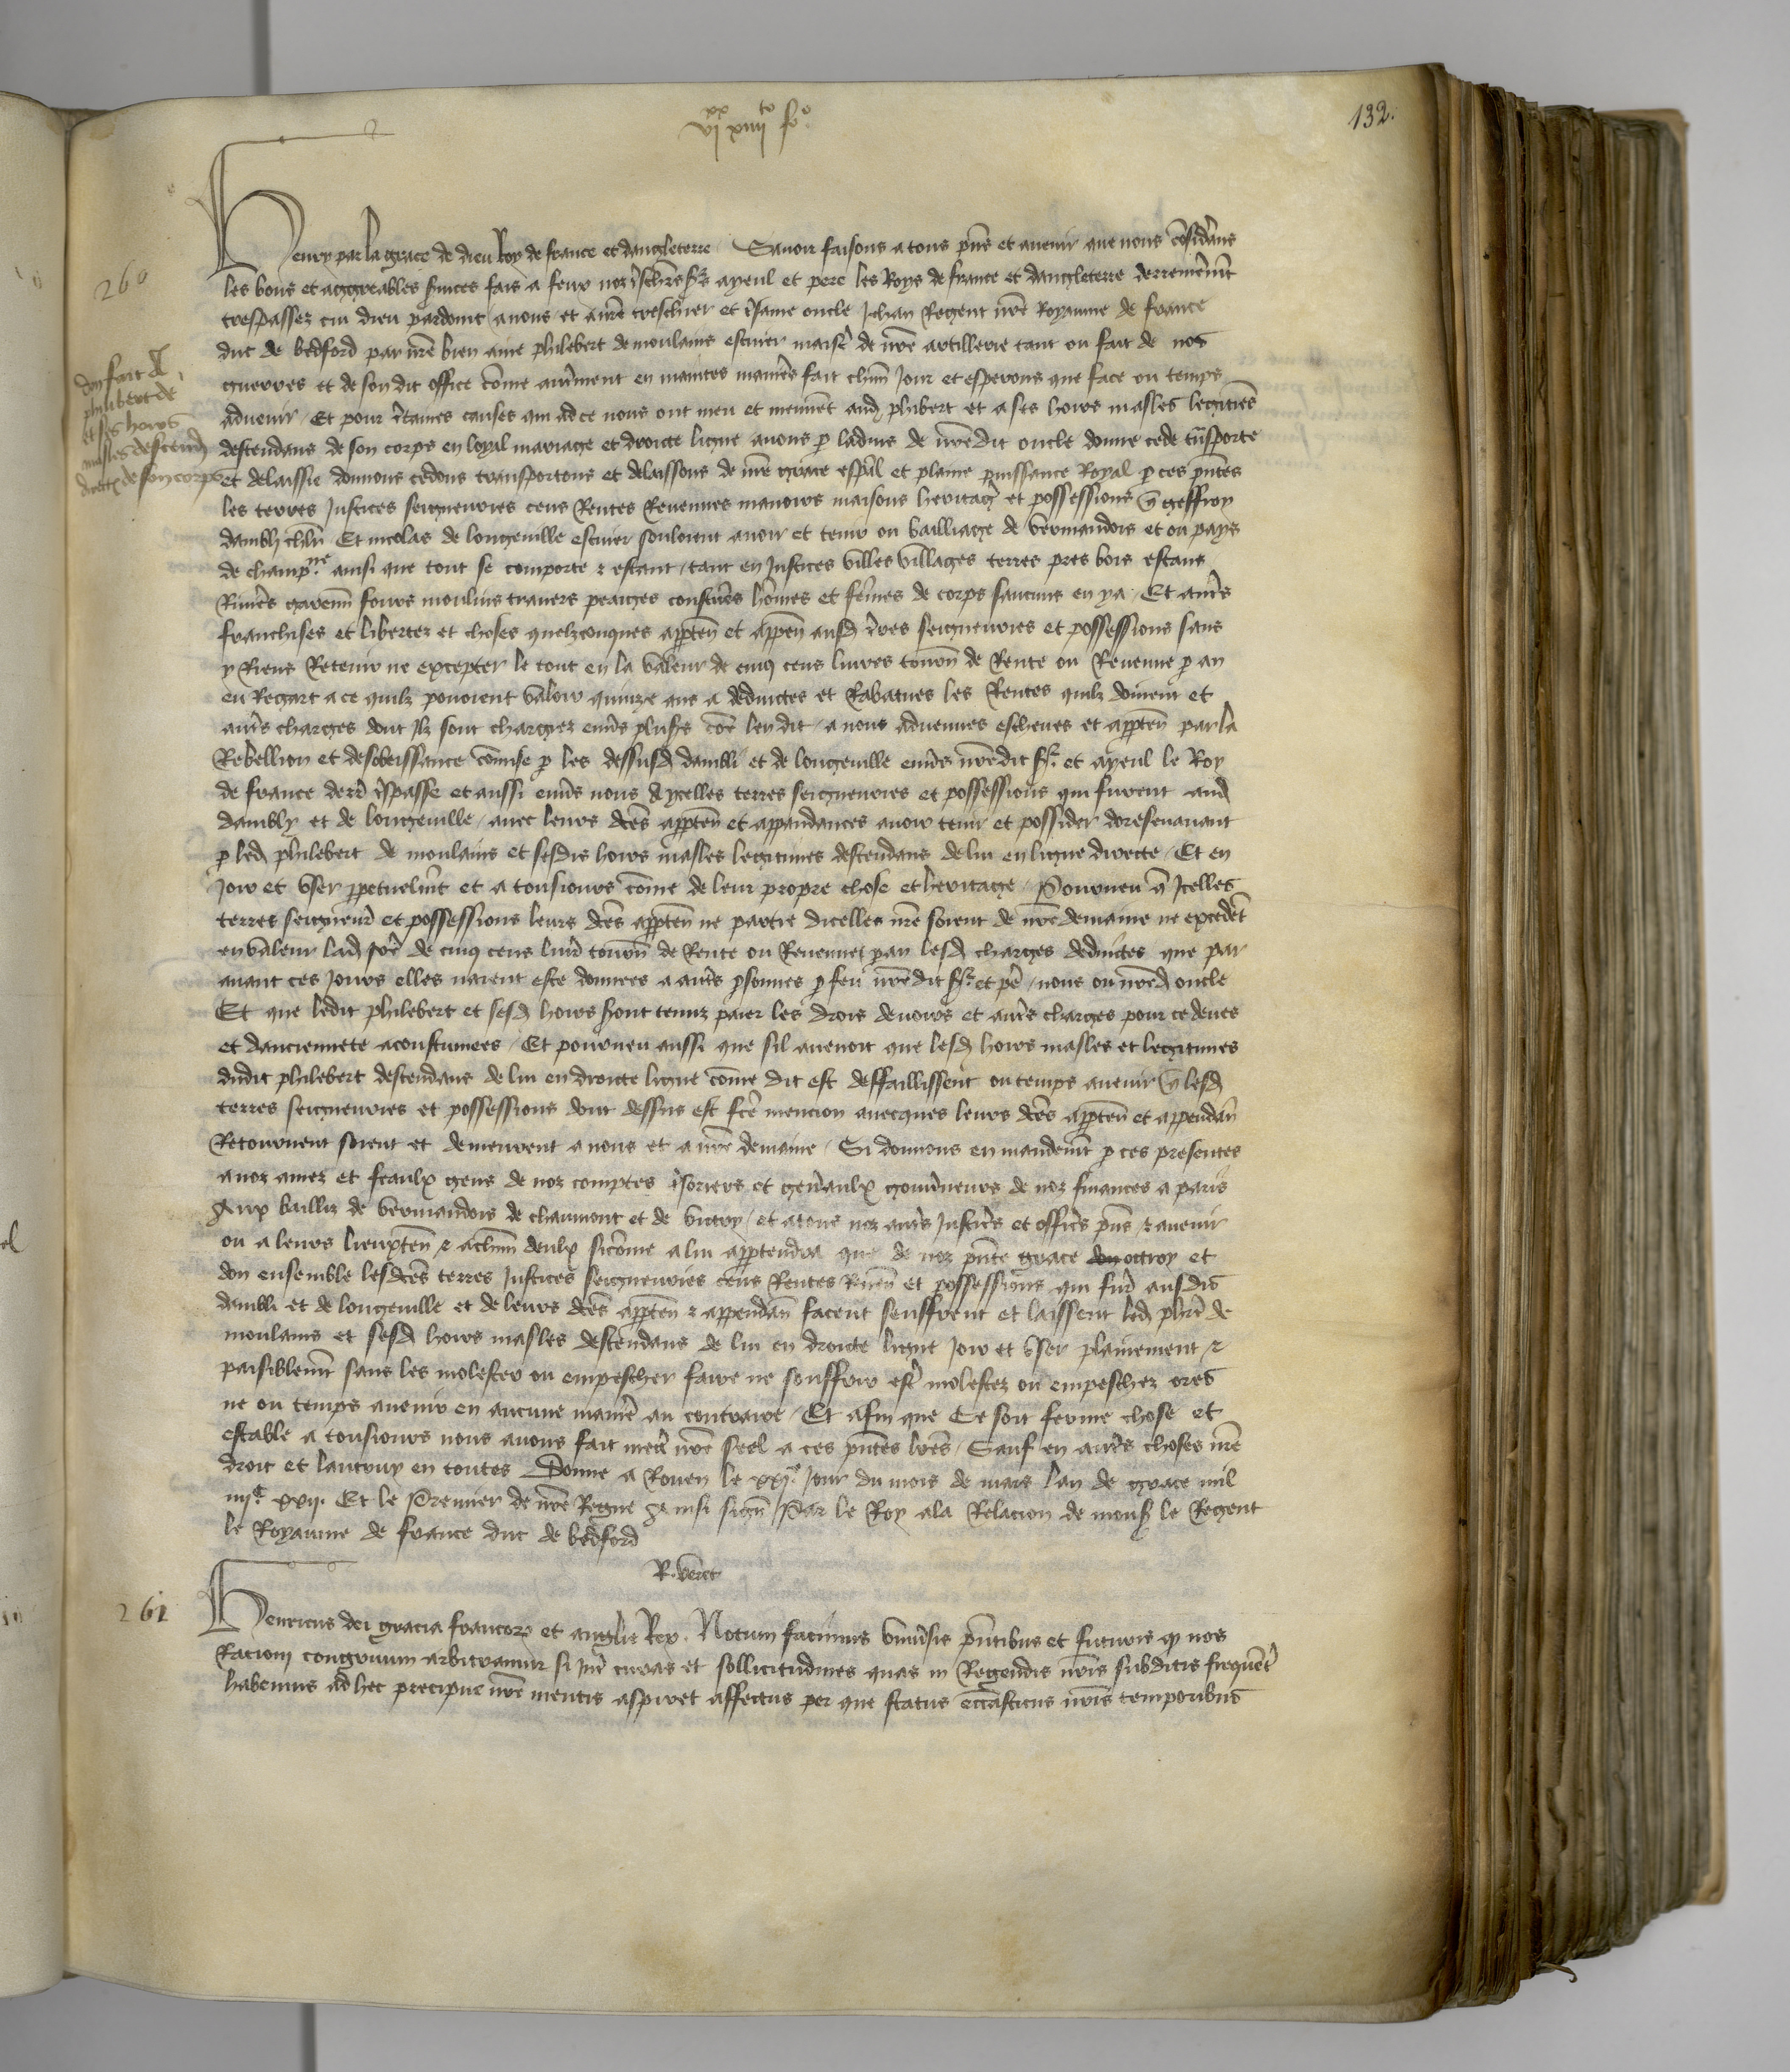 vi xx xiiii to fo
132.
260
Henry par la grace de dieu Roy de france et dangleterre Sauoir faisons a tous pns et auenir que nous cosiderans
les bons et aggreables seruices fais a feux noz treschrs srs ayeul et pere les Roys de france et dangleterre derrenierement
trespassez cui dieu pardoint a nous et a nre treschier et tsame oncle Jehan Regent nre Royaume de france
duc de bedford par nre bien ame philebert de moulains escuier maistre de nre artillerie tant ou fait de nos
guerres et de son dit office come autrement en maintes manieres fait chun jour et esperons que face ou temps
aduenir Et pour ctaines causes qui ad ce nous ont meu et meuuent aud phlibert et a ses hoirs masles legitimes
don fait A
philibert de
et ses hoirs
masles descend
directz de son corps
descendans de son corps en loyal mariage et droicte ligne auons p laduis de nredit oncle donne cede tnsporte
et delaissie donnons cedons transportons et delaissons de nre grace espal et plaine puissance Royal p ces pntes
les terres Justices seigneuries cens Rentes Reuenues manoirs maisons heritages et possessions q geffroy
dambly chlr Et nicolas de longeuille escuier souloient auoir et tenir ou bailliage de vermandois et ou pays
de champne ainsi que tout se comporte z estant tant en Justices villes villages terres pres bois estans
Riuieres garenn fours moulins trauers peaiges coustumes homes et femes de corps saucuns en ya Et autres
franchises et libertez et choses quelzconques apparten et appen ausd terres seigneuries et possessions sans
y Riens Retenir ne excepter le tout en la valeur de cinq cens liures tourn de Rente ou Reuenue p an
eu Regart a ce quilz pouoient valoir quinze ans a deduictes et Rabatues les Rentes quilz doiuent et
autres charges dont ilz sont chargez enuers plusrs coe len dit a nous aduenues escheues et apparten par la
Rebellion et desobeissance comise p les dessusd dambli et de longeuille enuers nredit sr et ayeul le Roy
de france derr tspasse et aussi enuers nous A ycelles terres seigneuries et possessions qui furent aud
dambly et de longeuille auec leurs dces apparten et appandances auoir tenir et possider doresenauant
p led philebert de moulains et sesdis hoirs masles legitimes descendans de lui en ligne directe Et en
Joir et vser ppetuelment et a tousiours come de leur propre chose et heritage Pourueu q Jcelles
terres seigneur et possessions leurs dces apparten ne partie dicelles nre soient de nre demaine ne excedent
en valeur lad some de cinq cens liur tourn de Rente ou Reuenues p an lesd charges deduictes que par
auant ces jours elles naient este donnees a autres psonnes p feu nredit sr et pe nous ou nred oncle
Et que ledit philebert et sesd hoirs seront tenuz paier les drois deuoirs et autres charges pour ce deues
et danciennete acoustumees Et pourueu aussi que sil auenoit que lesd hoirs masles et legitimes
dudit philebert descendans de lui en droicte ligne come dit est deffaillissent ou temps auenir q lesd
terres seigneuries et possessions dont dessus est fce mencion auecques leurs dces apparten et appendan
Retournent soient et demeurent a nous et a nre demaine Si donnons en mandement p ces presentes
a noz amez et feaulx gens de noz comptes tsoriers et generaulx gouuerneurs de noz finances a paris
Aux bailliz de vermandois de chaumont et de vitry et a tous noz autres Justiciers et officiers pns z auenir
ou a leurs lieuxten z a chun deulx sicome a lui appartendra que de noz pnte grace don octroy et
don ensemble lesdces terres Justices seigneuries cens Rentes Reuen et possessions qui fur ausdis
dambli et de longeuille et de leurs dces apparten z appendan facent seuffrent et laissent led phert de
moulains et sesd hoirs masles descendans de lui en droicte ligne Joir et vser plainement z
paisiblement sans les molester ou empescher faire ne souffrir estre molestez ou empeschez ores
ne ou temps auenir en aucune maniere au contraire Et afin que Ce soit ferme chose et
estable a tousiours nous auons fait mectre nre seel a ces pntes lres Sauf en autres choses nre
droit et lautruy en toutes Donne a Rouen le xxije jour du mois de mars lan de grace mil
iiijc xxij. Et le Premier de nre Regne Ainsi sign Par le Roy ala Relacion de mons le Regent
le Royaume de france duc de bedford
R. veret
261
Henricus dei gracia francorum et anglie Rex. Notum facimus vniuersis pntibus et futuris q nos
Racioni congruum arbitramur si inter curas et sollicitudines quas in Regendis nris subditis frequenter
habemus ad hec precipue nre mentis aspiret affectus per que status eccasticus nris temporibus